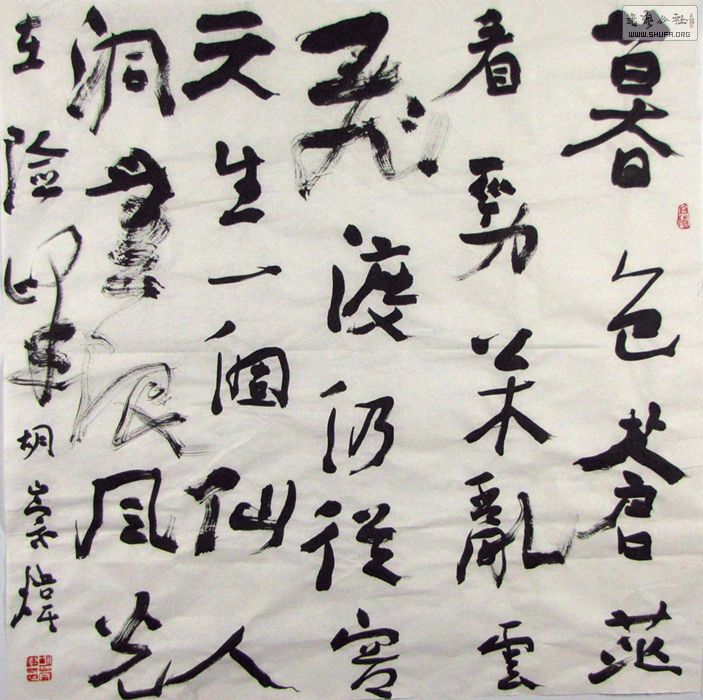 暮色蒼茫
看勁枩亂雲
飛渡仍從容
天生一個仙人
洞無限風光
在險峰 胡崇煒
書藝公社
WWW.SHUFA.ORG